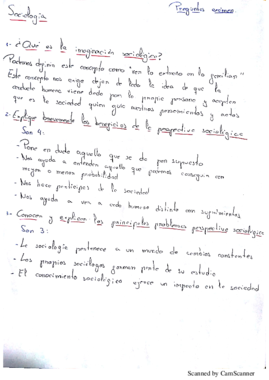 Sociología
Preguntas examen
1- ¿Qué es la imaginación sociológica?
Podemos definir este concepto como "ver lo extraño en lo familiar"
Este concepto nos exige dejar de lado la idea de que la
conducta humana viene dada por la propia persona y acepten
que es la sociedad quien guía nuestros pensamientos y actos
2- Explique brevemente los beneficios de la perspectiva sociológica
Son 4:
- Pone en duda aquello que se da por supuesto
- Nos ayuda a entender aquello que podemos conseguir con
mayor o menor probabilidad
- Nos hace partícipes de la sociedad
- Nos ayuda a ver a cada hombre distinto con
3- Conocen y explican los principales problemas perspectiva sociológica
Son 3:
- La sociología pertenece a un mundo de cambios constantes
- Los propios sociólogos forman parte de su estudio
- El conocimiento sociológico ejerce un impacto en la sociedad
Scanned by CamScanner